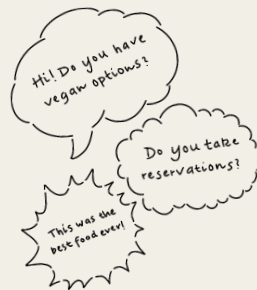 Hi! Do you have
vegan options?
Do you take
reservations?
This was the
best food ever!